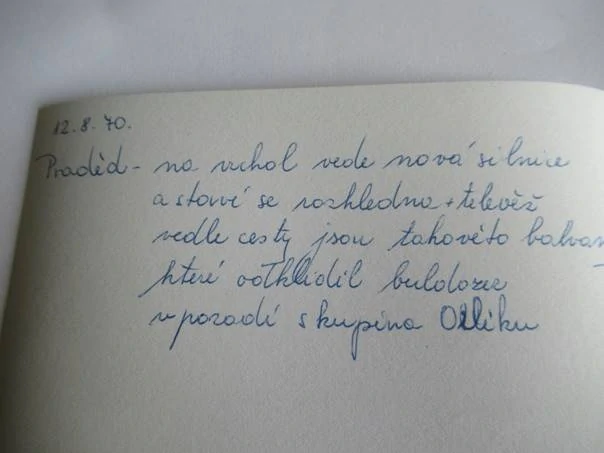 12.8.70.
Praděd - na vrchol vede nová silnice
a staví se rozhledna + televěž
vedle cesty jsou takovéto balvany
které odklidil buldozer
v pozadí skupina Orlíku